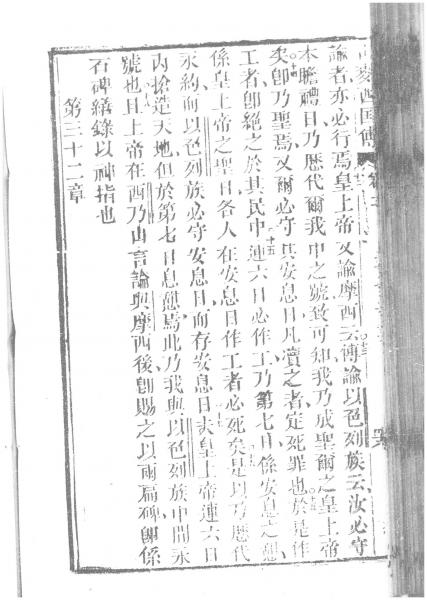 諭者亦必行焉皇上帝又諭摩西云傳諭以色列族云汝必守
本瞻禮日乃歷代爾我中之號致可知我乃成聖爾之皇上帝
矣卽乃聖焉又爾必守其安息日凡瀆之者定死罪也於是作
工者卽絕之於其民中連六日必作工乃第七日係安息之憩
係皇上帝之聖日各人在安息日作工者必死矣是以乃歷代
永約而以色列族必守安息日而存安息日夫皇上帝連六日
內搶造天地但於第七日息憩焉此乃我與以色列族中間永
號也且上帝在西乃山言論與摩西後卽賜之以兩扁碑卽係
石碑繕錄以神指也
第三十二章